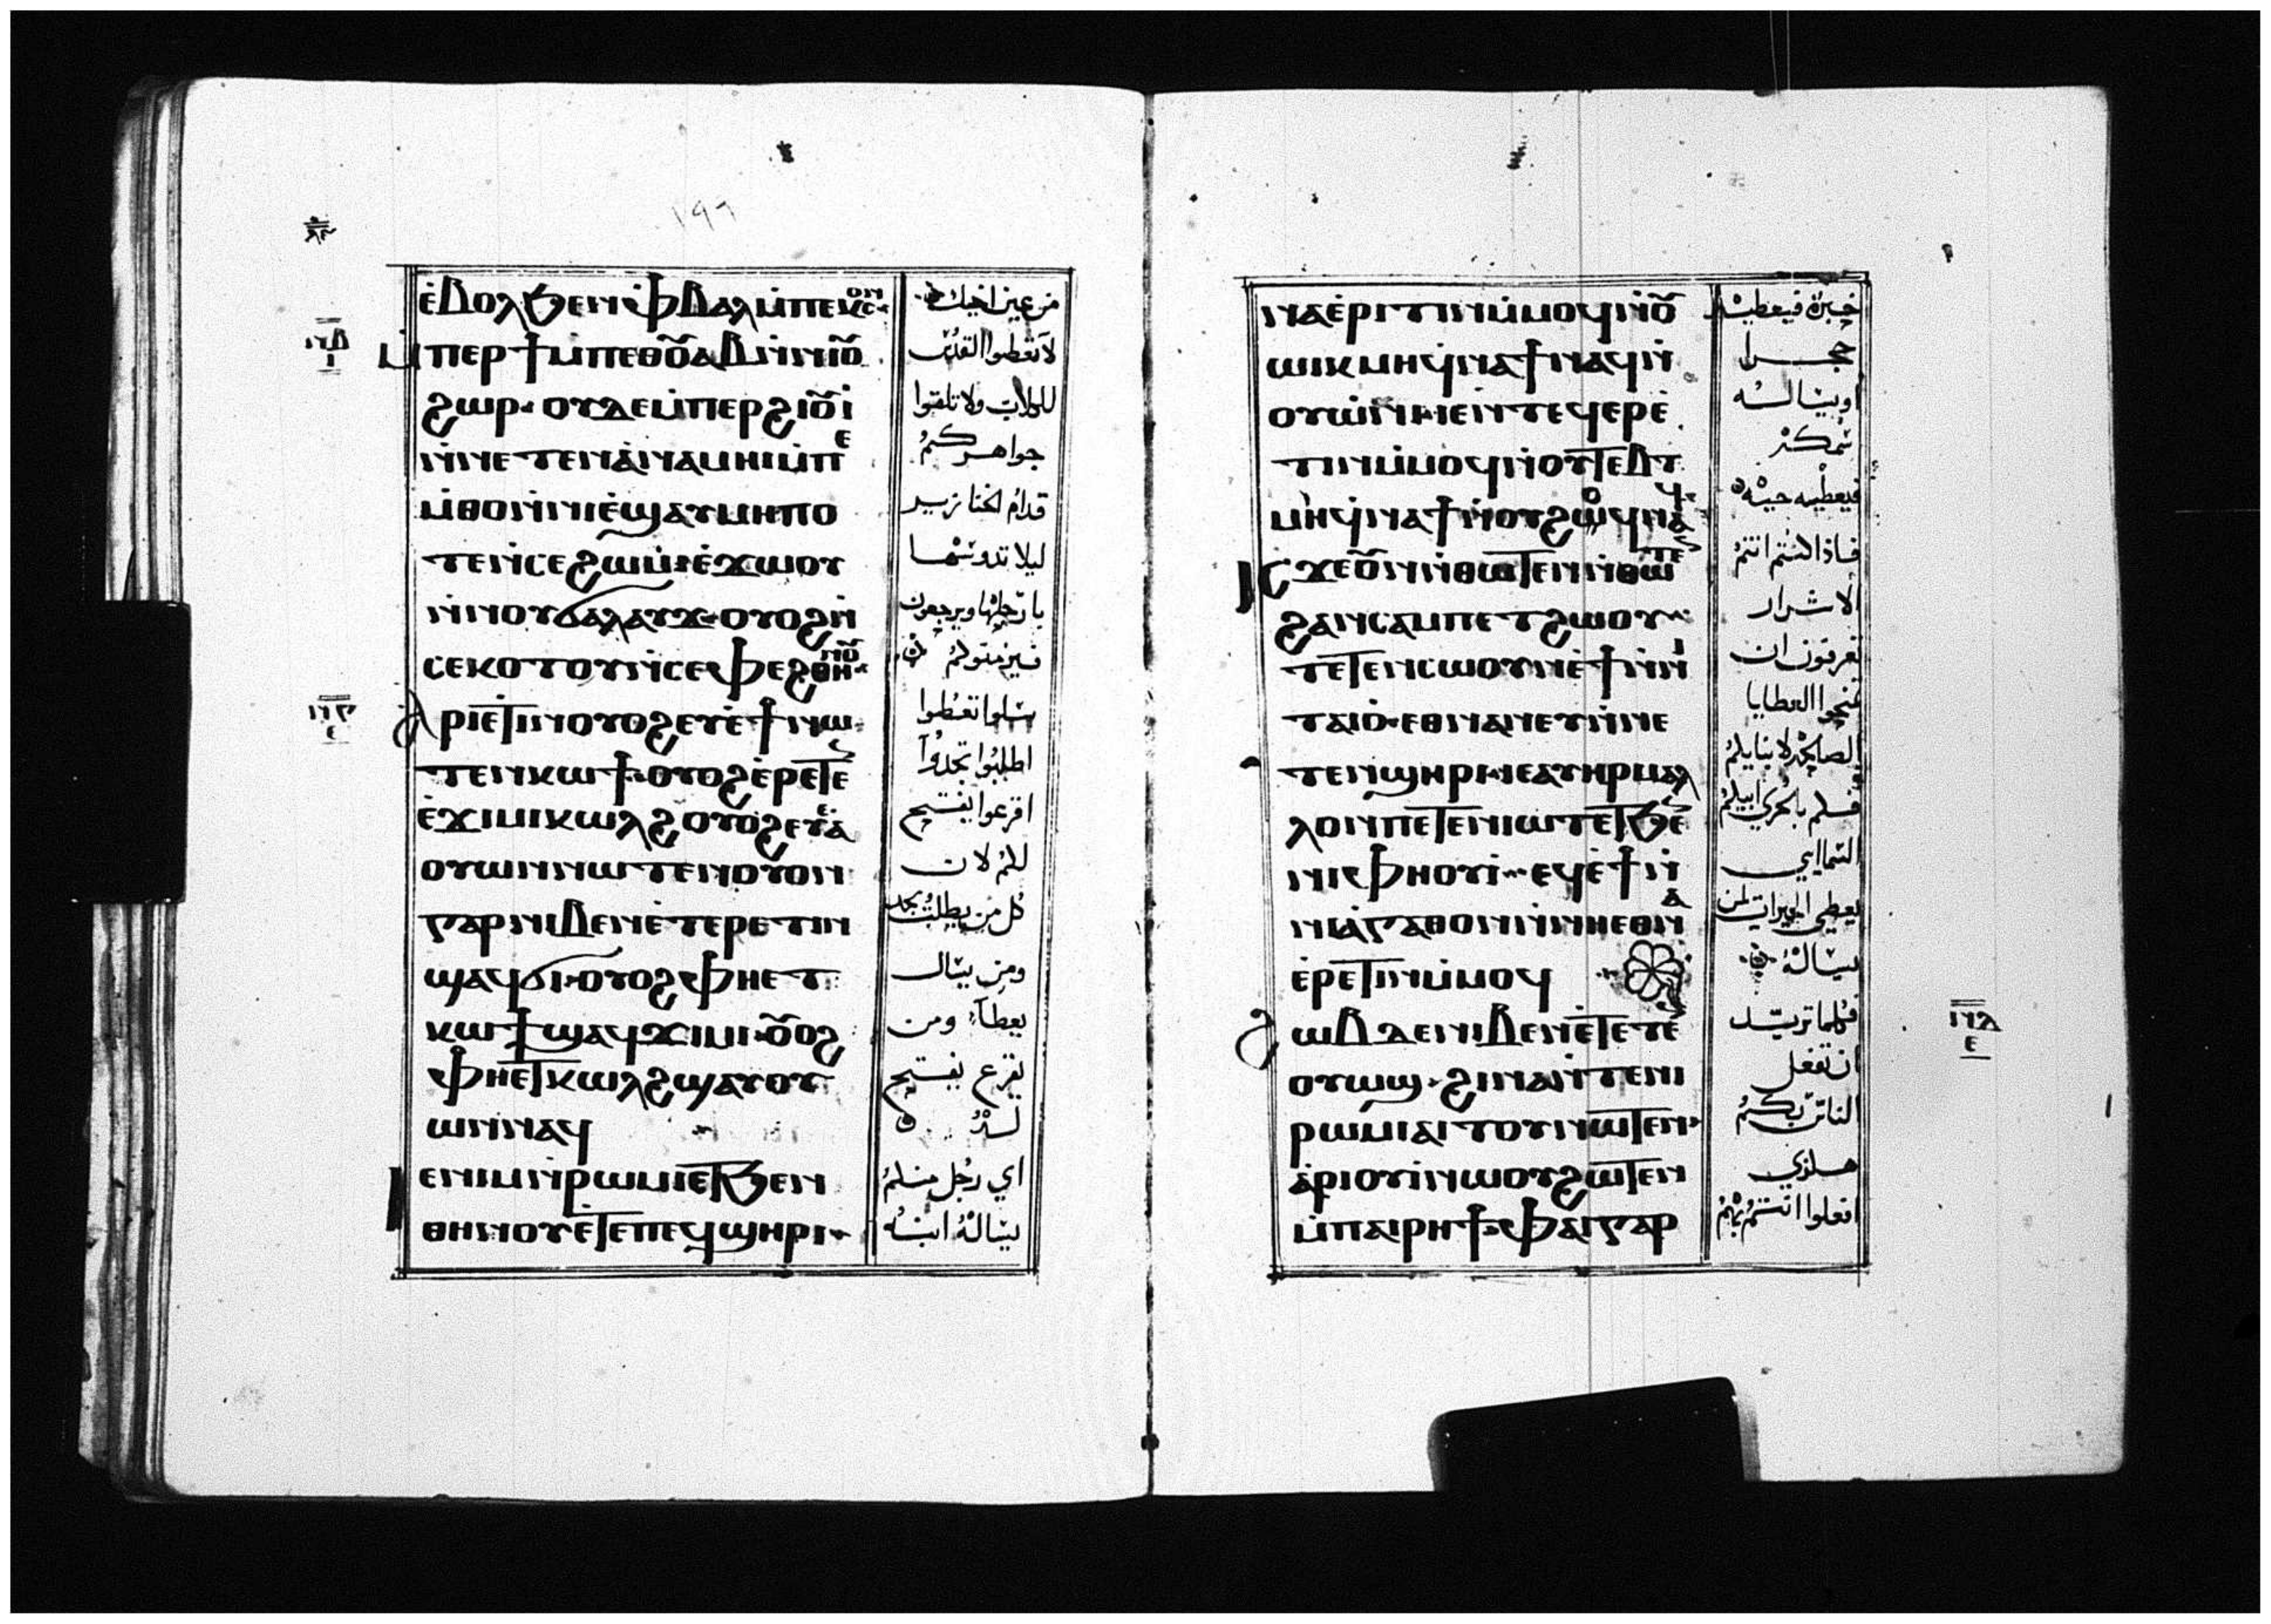 ⲉ̀ⲃⲟⲗϧⲉⲛⲫ̀ⲃⲁⲗⲙ̀ⲡⲉⲕⲥⲟⲛ
ⲙ̀ⲡⲉⲣϯⲙ̀ⲡⲉⲑⲟ̅ⲩⲁⲃⲛ̀ⲛⲓⲟ̅ⲩ
ϩⲱⲣ· ⲟⲩⲇⲉⲙ̀ⲡⲉⲣϩⲓⲟ̅ⲩⲓ̀
ⲛ̀ⲛⲉⲧⲉⲛⲁ̀ⲛⲁⲙⲏⲓⲙ̀ⲡⲉ
ⲙ̀ⲑⲟⲛ̀ⲛⲓⲉ̀ϣⲁⲩⲙⲏⲡⲟ
ⲧⲉⲛ̀ⲥⲉϩⲱⲙⲓⲉ̀ϫⲱⲟⲩ
ⲛ̀ⲛⲟⲩϭⲁⲗⲁⲩϫ·ⲟⲩⲟϩⲛ̀
ⲥⲉⲕⲟⲧⲟⲩⲛ̀ⲥⲉⲫⲉϩⲑⲏⲛⲟ̅ⲩ
ⲁⲣⲓⲉⲧⲓⲛⲟⲩⲟϩⲉⲩⲉ̀ϯⲛⲱ
ⲧⲉⲛⲕⲱϯ·ⲟⲩⲟϩⲉ̀ⲣⲉⲧⲉ
ⲉ̀ϫⲓⲙⲓⲕⲱⲗϩⲟⲩⲟϩⲉⲩⲉ̀ⲁ̀
ⲟⲩⲱⲛⲛⲱⲧⲉⲛⲟⲩⲟⲛ
ⲅⲁⲣⲛⲓⲃⲉⲛⲉ̀ⲧⲉⲣⲉⲧⲓⲛ
ϣⲁϥϭⲓ·ⲟⲩⲟϩⲫⲏⲉⲧ
ⲕⲱϯϣⲁϥϫⲓⲙⲓ·ⲟ̅ⲩⲟϩ
ⲫⲏⲉⲧⲕⲱⲗϩϣⲁⲩⲟⲩ
ⲱⲛⲛⲁϥ
ⲓⲉⲛⲓⲙⲛ̀ⲣⲱⲙⲓⲉⲧϧⲉⲛ
ⲑⲏⲛⲟⲩⲉ̀ⲧⲉⲡⲉϥϣⲏⲣⲓ
من عين اخيك
لا تعطوا القدس
للكلاب ولا تلقوا
جواهركم
قدام الخنازير
ليلا تدوسها
بارجلها ويرجعون
فيزمتوكم
سلوا تعطوا
اطلبوا تجدوا
اقرعوا يفتح
لكم لان
كل من يطلب يجد
ومن يسال
يعطا ومن
يقرع يفتح
له
اي رجل منكم
يساله ابنه
ⲛⲁⲉ̀ⲣⲓⲧⲓⲛⲙ̀ⲙⲟϥⲛ̀ⲟ̅ⲩ
ⲱⲓⲕⲙⲏϥ̀ⲛⲁϯⲛⲁϥⲛ̀
ⲟⲩⲱ̀ⲛⲓ·ⲓⲉⲛ̀ⲧⲉϥⲉⲣⲉ̀
ⲧⲓⲛⲙ̀ⲙⲟϥⲛ̀ⲟⲩⲧⲉⲃⲧ
ⲙⲏϥ̀ⲛⲁϯⲛ̀ⲟⲩϩⲟϥⲛⲁϥ
ⲓⲥϫⲉⲟ̅ⲩⲛⲛ̀ⲑⲱⲧⲉⲛⲛ̀ⲑⲱⲧⲉ
ϩⲁⲛⲥⲁⲙⲡⲉⲧϩⲱⲟⲩ
ⲧⲉⲧⲉⲛⲥⲱⲟⲩⲛⲉ̀ϯⲛ̀ⲛⲓ
ⲧⲁⲓⲟ̀·ⲉⲑⲛⲁⲛⲉⲩⲛ̀ⲛⲉ
ⲧⲉⲛϣⲏⲣⲓ·ⲓⲉⲁⲩⲏⲣⲙⲁⲗ
ⲗⲟⲛⲡⲉⲧⲉⲛⲓⲱⲧⲉⲧϧⲉ
ⲛⲓⲫⲏⲟⲩⲓ̀·ⲉϥⲉ̀ϯⲛ̀
ⲛⲓⲁ̀ⲅⲁⲑⲟⲛⲛ̀ⲛⲏⲉⲑⲛⲁ
ⲉ̀ⲣⲉⲧⲓⲛⲙ̀ⲙⲟϥ
ϩⲱⲃⲇⲉⲛⲓⲃⲉⲛⲉ̀ⲧⲉⲧⲉ
ⲟⲩⲱϣ·ϩⲓⲛⲁⲛ̀ⲧⲉⲛⲓ
ⲣⲱⲙⲓⲁⲓⲧⲟⲩⲛⲱⲧⲉⲛ
ⲁ̀ⲣⲓⲟⲩⲓ̀ⲛⲱⲟⲩϩⲱⲧⲉⲛ
ⲙ̀ⲡⲁⲓⲣⲏϯ·ⲫⲁⲓⲅⲁⲣ
خبزة فيعطيه
حجرا
او يساله
سمكة
فيعطيه حيه
فاذا كنتم انتم
الاشرار
تعرفون ان
تمنحوا العطايا
الصالحة لابنايكم
فكم بالحري ابيكم
السماايي
يعطي الخيرات لمن
يساله
فكلما تريد
ان تفعل
الناس بكم
هكذي
افعلوا انتم بهم